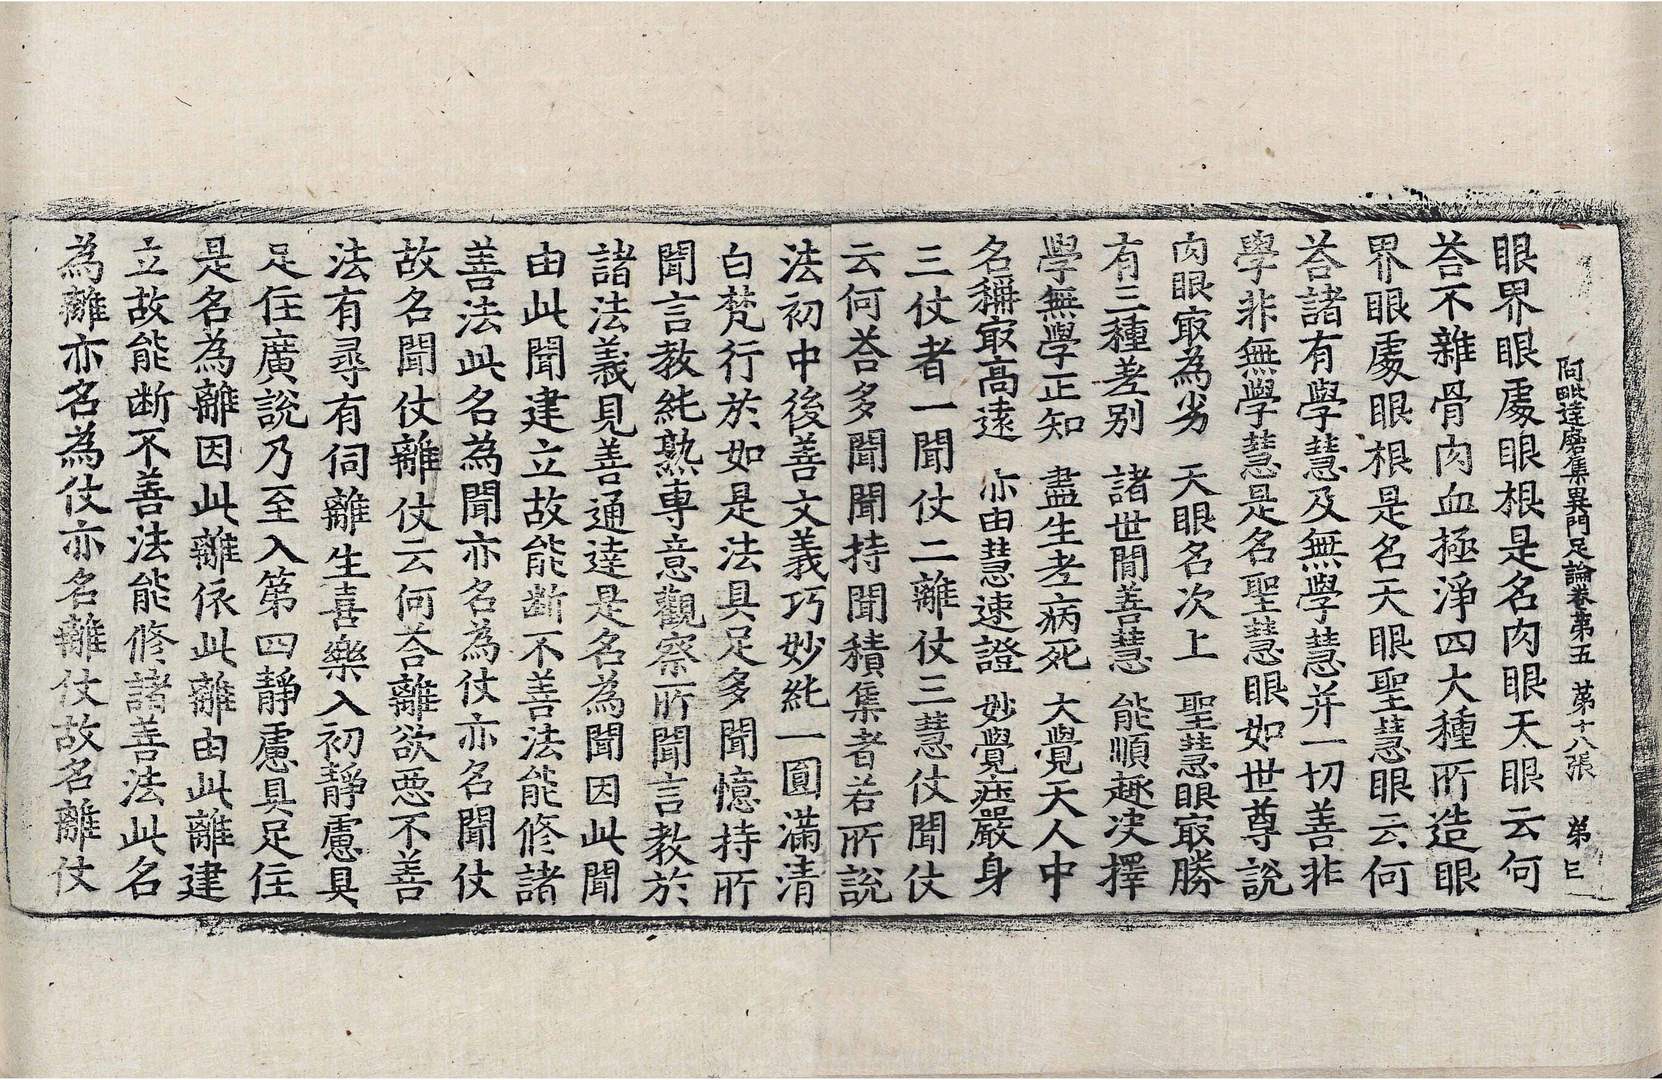 阿毗達磨集異門足論卷第五 第十八張 弟
眼界眼處眼根是名肉眼天眼云何
荅不雜骨肉血極淨四大種所造眼
界眼處眼根是名天眼聖慧眼云何
荅諸有學慧及無學慧并一切善非
學非無學慧是名聖慧眼如世尊說
肉眼㝡為劣 天眼名次上 聖慧眼㝡勝
有三種差別 諸世閒善慧 能順趣決擇
學無學正知 盡生老病死 大覺天人中
名稱㝡高遠 亦由慧速證 妙覺莊嚴身
三仗者一聞仗二離仗三慧仗聞仗
云何荅多聞聞持聞積集者若所說
法初中後善文義巧妙純一圓滿清
白梵行於如是法具足多聞憶持所
聞言教純熟專意觀察所聞言教於
諸法義見善通達是名為聞因此聞
由此聞建立故能斷不善法能修諸
善法此名為聞亦名為仗亦名聞仗
故名聞仗離仗云何荅離欲惡不善
法有尋有伺離生喜樂入初靜慮具
足住廣說乃至入第四靜慮具足住
是名為離因此離依此離由此離建
立故能斷不善法能修諸善法此名
為離亦名為仗亦名離仗故名離仗